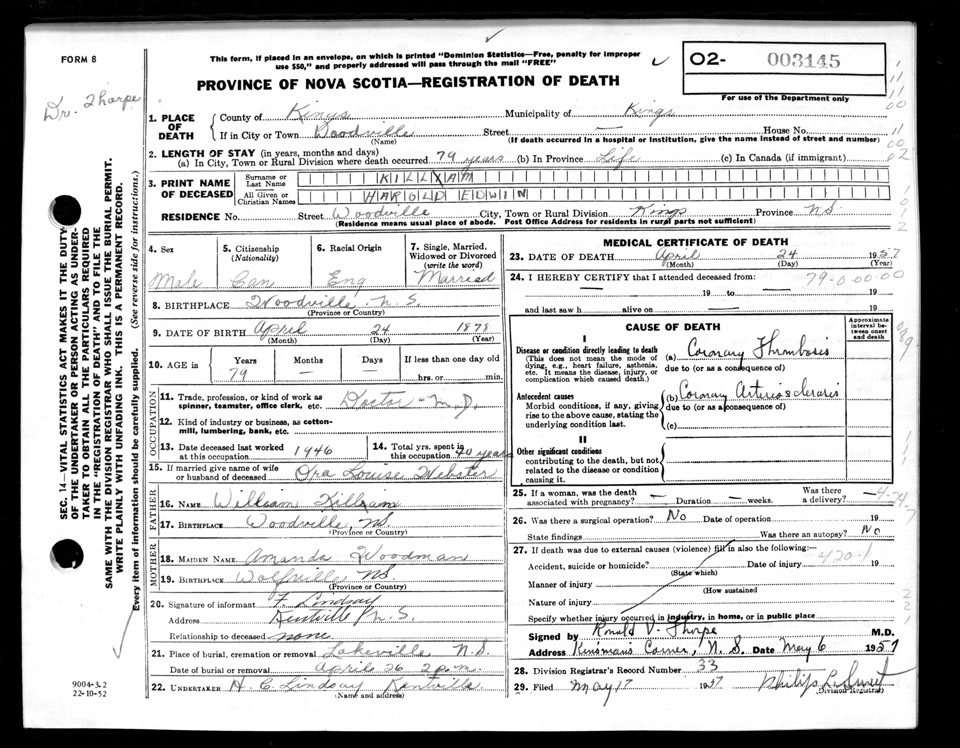 FORM 8
This form, if placed in an envelope, on which is printed "Dominion Statistics—Free, penalty for improper
use $50," and properly addressed will pass through the mail "FREE"
PROVINCE OF NOVA SCOTIA—REGISTRATION OF DEATH
O2- 003145
For use of the Department only
Dr. Thorpe
1. PLACE OF DEATH County of Kings Municipality of Kings
If in City or Town Woodville Street — House No.
(Name) (If death occurred in a hospital or institution, give the name instead of street and number)
2. LENGTH OF STAY (in years, months and days)
(a) In City, Town or Rural Division where death occurred 79 years (b) In Province Life (c) In Canada (if immigrant)
3. PRINT NAME OF DECEASED Surname or Last Name KILLAM
All Given or Christian Names HAROLD EDWIN
RESIDENCE No. Street Woodville City, Town or Rural Division Kings Province N.S.
(Residence means usual place of abode. Post Office Address for residents in rural parts not sufficient)
4. Sex Male
5. Citizenship (Nationality) Can
6. Racial Origin Eng
7. Single, Married, Widowed or Divorced (write the word) Married
8. BIRTHPLACE Woodville N.S.
(Province or Country)
9. DATE OF BIRTH April 24 1878
(Month) (Day) (Year)
10. AGE in Years Months Days If less than one day old
79 — — hrs. or min.
OCCUPATION
11. Trade, profession, or kind of work as spinner, teamster, office clerk, etc. Doctor "M.D.
12. Kind of industry or business, as cotton-mill, lumbering, bank, etc.
13. Date deceased last worked at this occupation 1946
14. Total yrs. spent in this occupation 40 years
15. If married give name of wife or husband of deceased Ora Louise Webster
FATHER
16. NAME William Killam
17. BIRTHPLACE Woodville, N.S.
(Province or Country)
MOTHER
18. MAIDEN NAME Amanda Woodman
19. BIRTHPLACE Wolfville N.S.
(Province or Country)
20. Signature of informant F. Lindsay
Address Kentville N.S.
Relationship to deceased none
21. Place of burial, cremation or removal Lakeville N.S.
Date of burial or removal April 26 2 p.m.
22. UNDERTAKER H. C. Lindsay Kentville
(Name and address)
MEDICAL CERTIFICATE OF DEATH
23. DATE OF DEATH April 24 1957
(Month) (Day) (Year)
24. I HEREBY CERTIFY that I attended deceased from: 79-0-00-00
— 19 to — 19
and last saw h alive on — 19
CAUSE OF DEATH
Approximate interval between onset and death
I
Disease or condition directly leading to death
(This does not mean the mode of dying, e.g., heart failure, asthenia, etc. It means the disease, injury, or complication which caused death.)
(a) Coronary Thrombosis
due to (or as a consequence of)
Antecedent causes
Morbid conditions, if any, giving rise to the above cause, stating the underlying condition last.
(b) Coronary Arteriosclerosis
due to (or as a consequence of)
(c)
II
Other significant conditions
contributing to the death, but not related to the disease or condition causing it.
25. If a woman, was the death associated with pregnancy? — Duration — weeks. Was there a delivery? —
26. Was there a surgical operation? No Date of operation 19
State findings Was there an autopsy? No
27. If death was due to external causes (violence) fill in also the following:—
Accident, suicide or homicide? Date of injury 19
420-1
(State which)
Manner of injury
(How sustained
Nature of injury
Specify whether injury occurred in industry, in home, or in public place
Signed by Ronald V. Thorpe M.D.
Address Kinsmans Corner, N.S. Date May 6 1957
28. Division Registrar's Record Number 33
29. Filed May 17 1957 Philip L. Sweet
(Division Registrar)
SEC. 14—VITAL STATISTICS ACT MAKES IT THE DUTY
OF THE UNDERTAKER OR PERSON ACTING AS UNDER-
TAKER TO OBTAIN ALL THE PARTICULARS REQUIRED
IN THE "REGISTRATION OF DEATH" AND TO FILE THE
SAME WITH THE DIVISION REGISTRAR WHO SHALL ISSUE THE BURIAL PERMIT.
WRITE PLAINLY WITH UNFADING INK. THIS IS A PERMANENT RECORD.
Every item of information should be carefully supplied. (See reverse side for instructions.)
9004-3.2
22-10-52